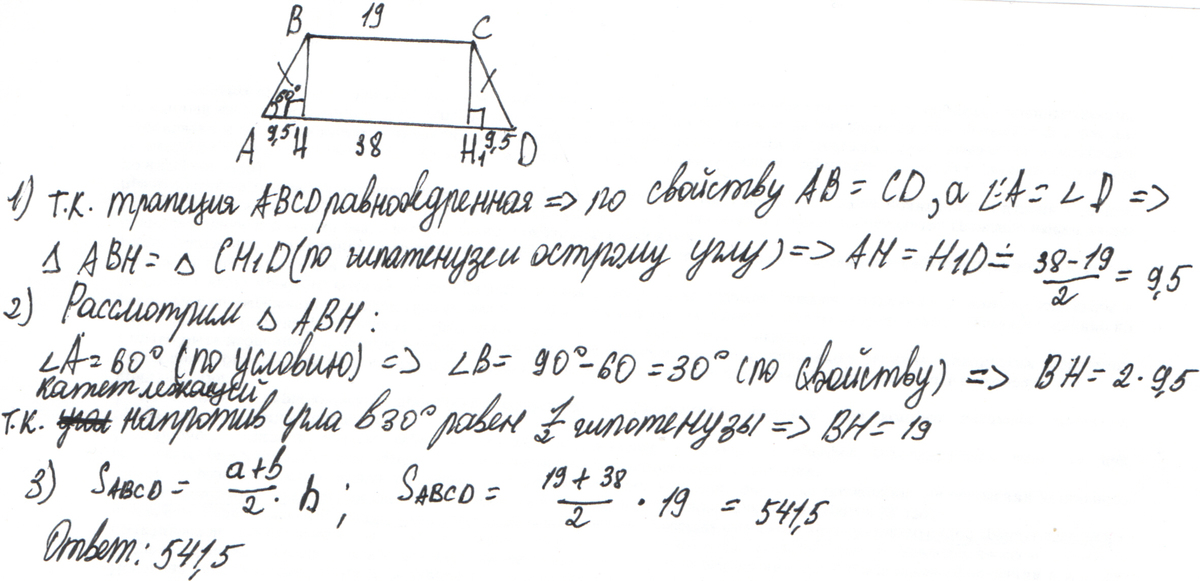 B 19 C
60°
A 9,5 H 38 H₁ 9,5 D
1) т.к. трапеция ABCD равнобедренная => по свойству AB = CD, а ∠A = ∠D =>
Δ ABH = Δ CH₁D (по гипатенузе и острому углу) => AH = H₁D = 38-19/2 = 9,5
2) Рассмотрим Δ ABH:
∠A = 60° (по условию) => ∠B = 90°-60 = 30° (по свойству) => BH = 2·9,5
катет лежащий
т.к. напротив угла в 30° равен 1/2 гипотенузы => BH = 19
3) SABCD = a+b/2 · h; SABCD = 19+38/2 · 19 = 541,5
Ответ: 541,5